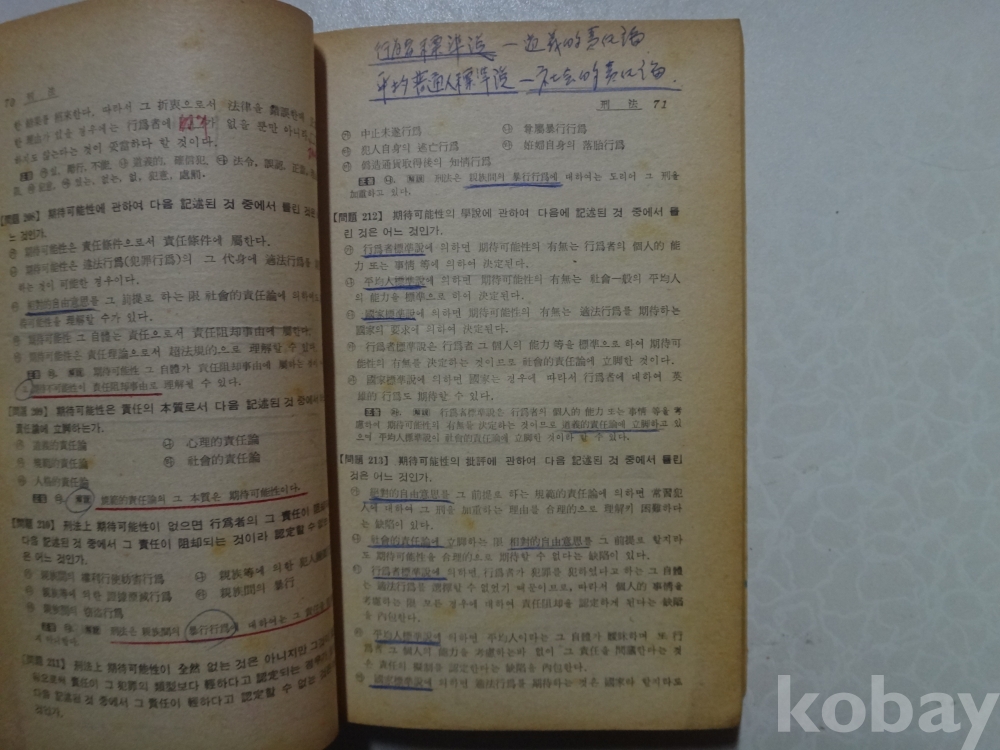 70 刑 法
한 結果를 招來한다. 따라서 그 折衷으로서 法律을
한 理由가 있을 경우에는 行爲者에 없을 뿐만 아니라
하지도 않는다는 것이 妥當하다 할 것이다.
【問題 208】 期待可能性에 관하여 다음 記述된 것 中에서 틀린 것은
느 것인가.
㉮ 期待可能性은 責任條件으로서 責任條件에 屬한다.
㉯ 期待可能性은 違法行爲(犯罪行爲)의 그 代身에 適法行爲를
하는 것이 可能할 경우이다.
㉰ 相對的自由意思를 그 前提로 하는 限 社會的責任論에 의하여도
期待可能性을 理解할 수가 있다.
㉱ 期待可能性 그 自體는 責任으로서 責任阻却事由에 屬한다.
㉲ 期待可能性은 責任理論으로서 超法規的으로 理解할 수 있다.
正答 ㉱. 解説 期待可能性 그 自體가 責任阻却事由에 屬하는
고 期待不可能性이 責任阻却事由로 理解될 수 있다.
【問題 209】 期待可能性은 責任의 本質로서 다음 記述된 것 中에서
責任論에 立脚하는가.
㉮ 道義的責任論 ㉯ 心理的責任論
㉰ 規範的責任論 ㉱ 社會的責任論
㉲ 人格的責任論
正答 ㉰. 解説 規範的責任論의 그 本質은 期待可能性이다.
【問題 210】 刑法上 期待可能性이 없으면 行爲者의 그 責任이
다음 記述된 것 中에서 그 責任이 阻却되는 것이라 認定할 수 없는
은 어느 것인가.
㉮ 親族間의 權利行使妨害行爲 ㉯ 親族等에 의한 犯人
㉰ 親族等에 의한 證據湮滅行爲 ㉱ 親族間의 暴行
㉲ 親族間의 行爲
解説 刑法은 親族間의 暴行行爲에 대하여는 그 責任을
【問題 211】 刑法上 期待可能性이 全然 없는 것은 아니지만
등으로서 責任이 그 犯罪의 類型보다 輕하다고 認定되는
다음 記述된 것 中에서 그 責任이 輕하다고 認定할 수 없는
것인가.
行爲者標準說 — 道義的責任論
平均普通人標準說 — 社會的責任論.
刑 法 71
㉮ 中止未遂行爲 ㉯ 尊屬暴行行爲
㉰ 犯人自身의 逃亡行爲 ㉱ 姙婦自身의 落胎行爲
㉲ 僞造通貨取得後의 知情行爲
正答 ㉯. 解説 刑法은 親族間의 暴行行爲에 대하여는 도리어 그 刑을
加重하고 있다.
【問題 212】 期待可能性의 學說에 관하여 다음에 記述된 것 中에서 틀
린 것은 어느 것인가.
㉮ 行爲者標準說에 의하면 期待可能性의 有無는 行爲者의 個人的 能
力 또는 事情 等에 의하여 決定된다.
㉯ 平均人標準說에 의하면 期待可能性의 有無는 社會一般의 平均人
의 能力을 標準으로 하여 決定된다.
㉰ 國家標準說에 의하면 期待可能性의 有無는 適法行爲를 期待하는
國家의 要求에 의하여 決定된다.
㉱ 行爲者標準說은 行爲者 그 個人의 能力 等을 標準으로 하여 期待可
能性의 有無를 決定하는 것이므로 社會的責任論에 立脚할 것이다.
㉲ 國家標準說에 의하면 國家는 경우에 따라서 行爲者에 대하여 英
雄的 行爲도 期待할 수 있다.
正答 ㉱. 解説 行爲者標準說은 行爲者의 個人的 能力 또는 事情 等을 考
慮하여 期待可能性의 有無를 決定하는 것이므로 道義的責任論에 立脚하고 있
으며 平均人標準說이 社會的責任論에 立脚된 것이라 할 수 있다.
【問題 213】 期待可能性의 批評에 관하여 다음 記述된 것 中에서 틀린
것은 어느 것인가.
㉮ 絶對的自由意思를 그 前提로 하는 規範的責任論에 의하면 常習犯
人에 대하여 그 刑을 加重하는 理由를 合理的으로 理解키 困難하다
는 缺陷이 있다.
㉯ 社會的責任論에 立脚하는 限 相對的自由意思를 그 前提로 할지라
도 期待可能性을 合理的으로 期待할 수 없다는 缺陷이 있다.
㉰ 行爲者標準說에 의하면, 行爲者가 犯罪를 犯하였다고 하는 그 自體
는 適法行爲를 選擇할 수 없었기 때문이므로, 따라서 個人的 事情을
考慮하는 限 모든 경우에 대하여 責任阻却을 認定하게 된다는 缺陷
을 內包한다.
㉱ 平均人標準說에 의하면 平均人이라는 그 自體가 曖昧하며 또 行
爲者 그 個人의 能力을 考慮하는바 없이 그 責任을 問議한다는 것
은 責任의 擬制를 認定한다는 缺陷을 內包한다.
㉲ 國家標準說에 의하면 適法行爲를 期待하는 것은 國家라 할지라도
kobay